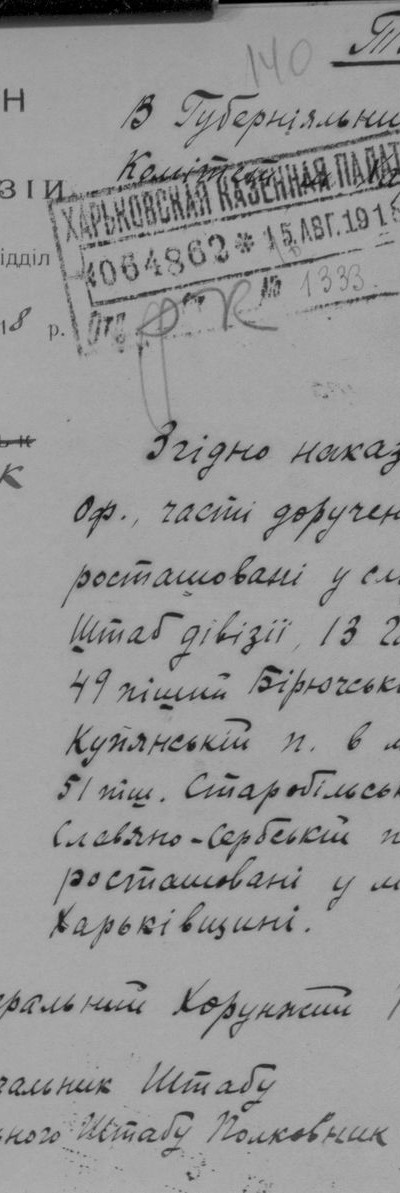 140
Н
В Губерніяльни
Комітет
ЗІИ
ХАРЬКОВСКАЯ КАЗЕННАЯ ПАЛАТ
ідділ
*064862* 15.АВГ.1918
18 р.
Отд. № 1333.
ьк
к
Згідно наказ
Оф., часті доручен
росташовані у сл
Штаб дівізії, 13 Г
49 піший Бірючськ
Купянській п. в м
51 піш. Старобільськ
Славяно-Сербській п
росташовані у м
Харьківщині.
еральний Хорунжий
чальник Штабу
ьного Штабу Полковник